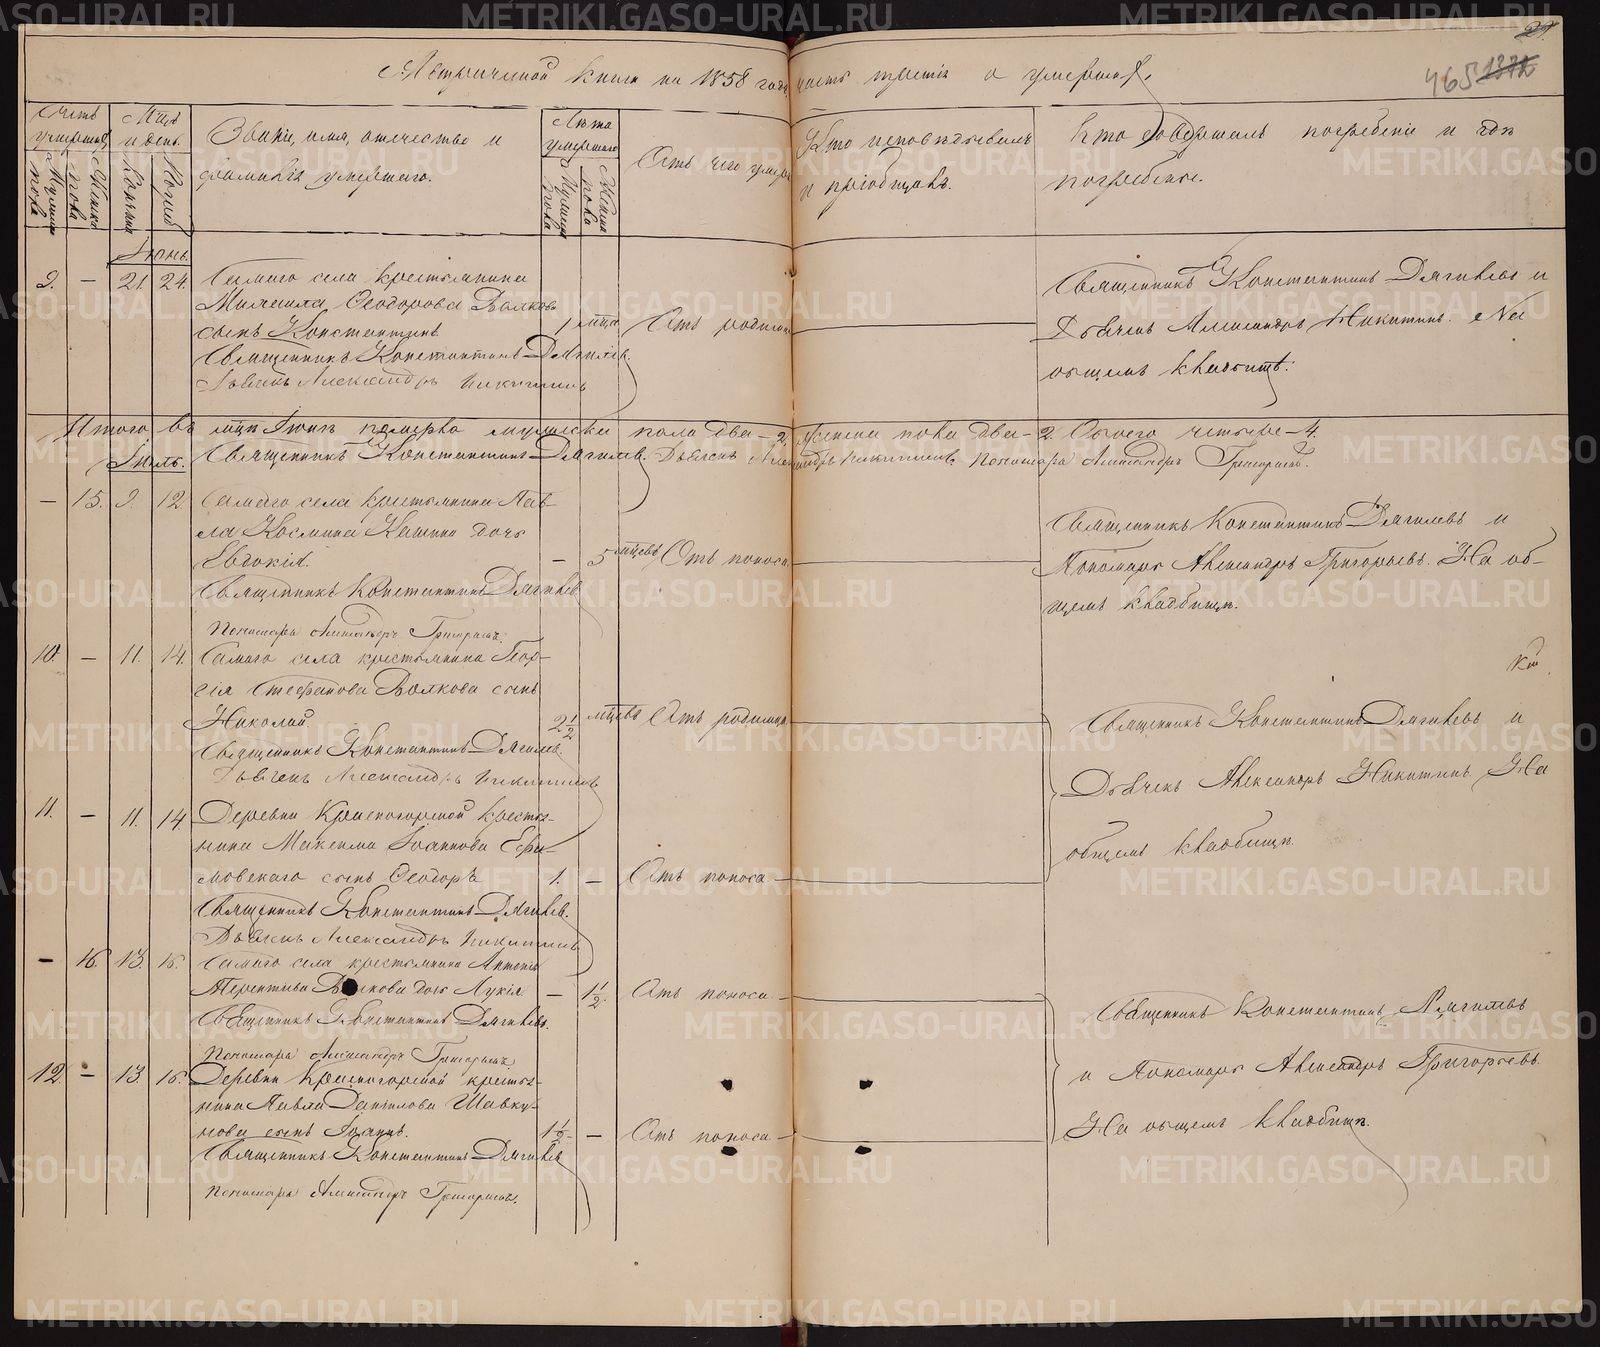 Метрической книги на 1858 годъ часть третія о умершихъ.
465 1372
Счетъ умершихъ
Мужеска пола
Женска пола
Мѣсяцъ и день.
Кончины
Погребенія
Званіе, имя, отечество и
фамилія умершаго.
Лѣта умершаго
Мужеска пола
Женска пола
Отъ чего умеръ
Кто исповѣдывалъ
и пріобщалъ.
Кто совершалъ погребеніе и гдѣ
погребены.
Іюнь.
9. — 21. 24. Самаго села крестьянина
Михаила Ѳеодорова Волкова
сынъ Константинъ 1 мѣсяца Отъ родимца
Священникъ Константинъ Дягилевъ.
Дьячекъ Александръ Никитинъ
Священникъ Константинъ Дягилевъ и
Дьячекъ Александръ Никитинъ. На
общемъ кладбищѣ.
Итого въ мѣсяцѣ Іюнѣ померло мужеска пола два — 2. Женска пола два — 2. Обоего четыре — 4.
Священникъ Константинъ Дягилевъ. Дьячекъ Александръ Никитинъ. Пономарь Александръ Григорьевъ.
Іюль.
— 15. 9. 12. Самаго села крестьянина Пав-
ла Космина Кашина дочь
Евдокія. — 5 мѣсяцевъ Отъ поноса
Священникъ Константинъ Дягилевъ
Пономарь Александръ Григорьевъ.
Священникъ Константинъ Дягилевъ и
Пономарь Александръ Григорьевъ. На об-
щемъ кладбищѣ.
10. — 11. 14. Самаго села крестьянина Геор-
гія Стефанова Волкова сынъ
Николай 2½ мѣсяцевъ Отъ родимца
Священникъ Константинъ Дягилевъ.
Дьячекъ Александръ Никитинъ
Священникъ Константинъ Дягилевъ и
Дьячекъ Александръ Никитинъ На
общемъ кладбищѣ.
11. — 11. 14. Деревни Красногорской крестья-
нина Максима Іоаннова Ефи-
мовскаго сынъ Ѳеодоръ 1. — Отъ поноса
Священникъ Константинъ Дягилевъ.
Дьячекъ Александръ Никитинъ
— 16. 13. 16. Самаго села крестьянина Антонія
Терентьева Волкова дочь Лукія — 1½. Отъ поноса
Священникъ Константинъ Дягилевъ.
Пономарь Александръ Григорьевъ
Священникъ Константинъ Дягилевъ
и Пономарь Александръ Григорьевъ.
На общемъ кладбищѣ.
12. — 13. 16. Деревни Красногорской крестья-
нина Павла Даніилова Шавку-
нова сынъ Іоаннъ. 1½. — Отъ поноса
Священникъ Константинъ Дягилевъ
Пономарь Александръ Григорьевъ.
METRIKI.GASO-URAL.RU